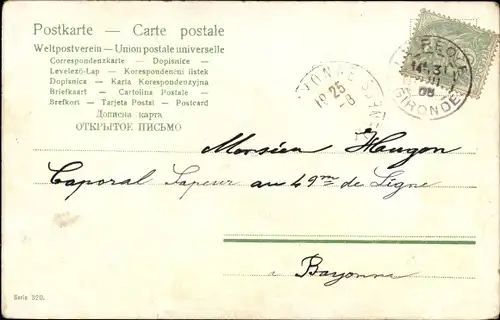 Postkarte — Carte postale
Weltpostverein — Union postale universelle
Correspondenzkarte — Dopisnice
Levelező-Lap — Korespondenční lístek
Dopisnica — Karta Korespondencyjna
Briefkaart — Cartolina Postale
Brefkort — Tarjeta Postal — Postcard
Дописна карта
ОТКРЫТОЕ ПИСЬМО
25
GIRONDE
08
Monsieu Haugon
Caporal Sapeur au 49me de Ligne
a Bayonne
Serie 320.